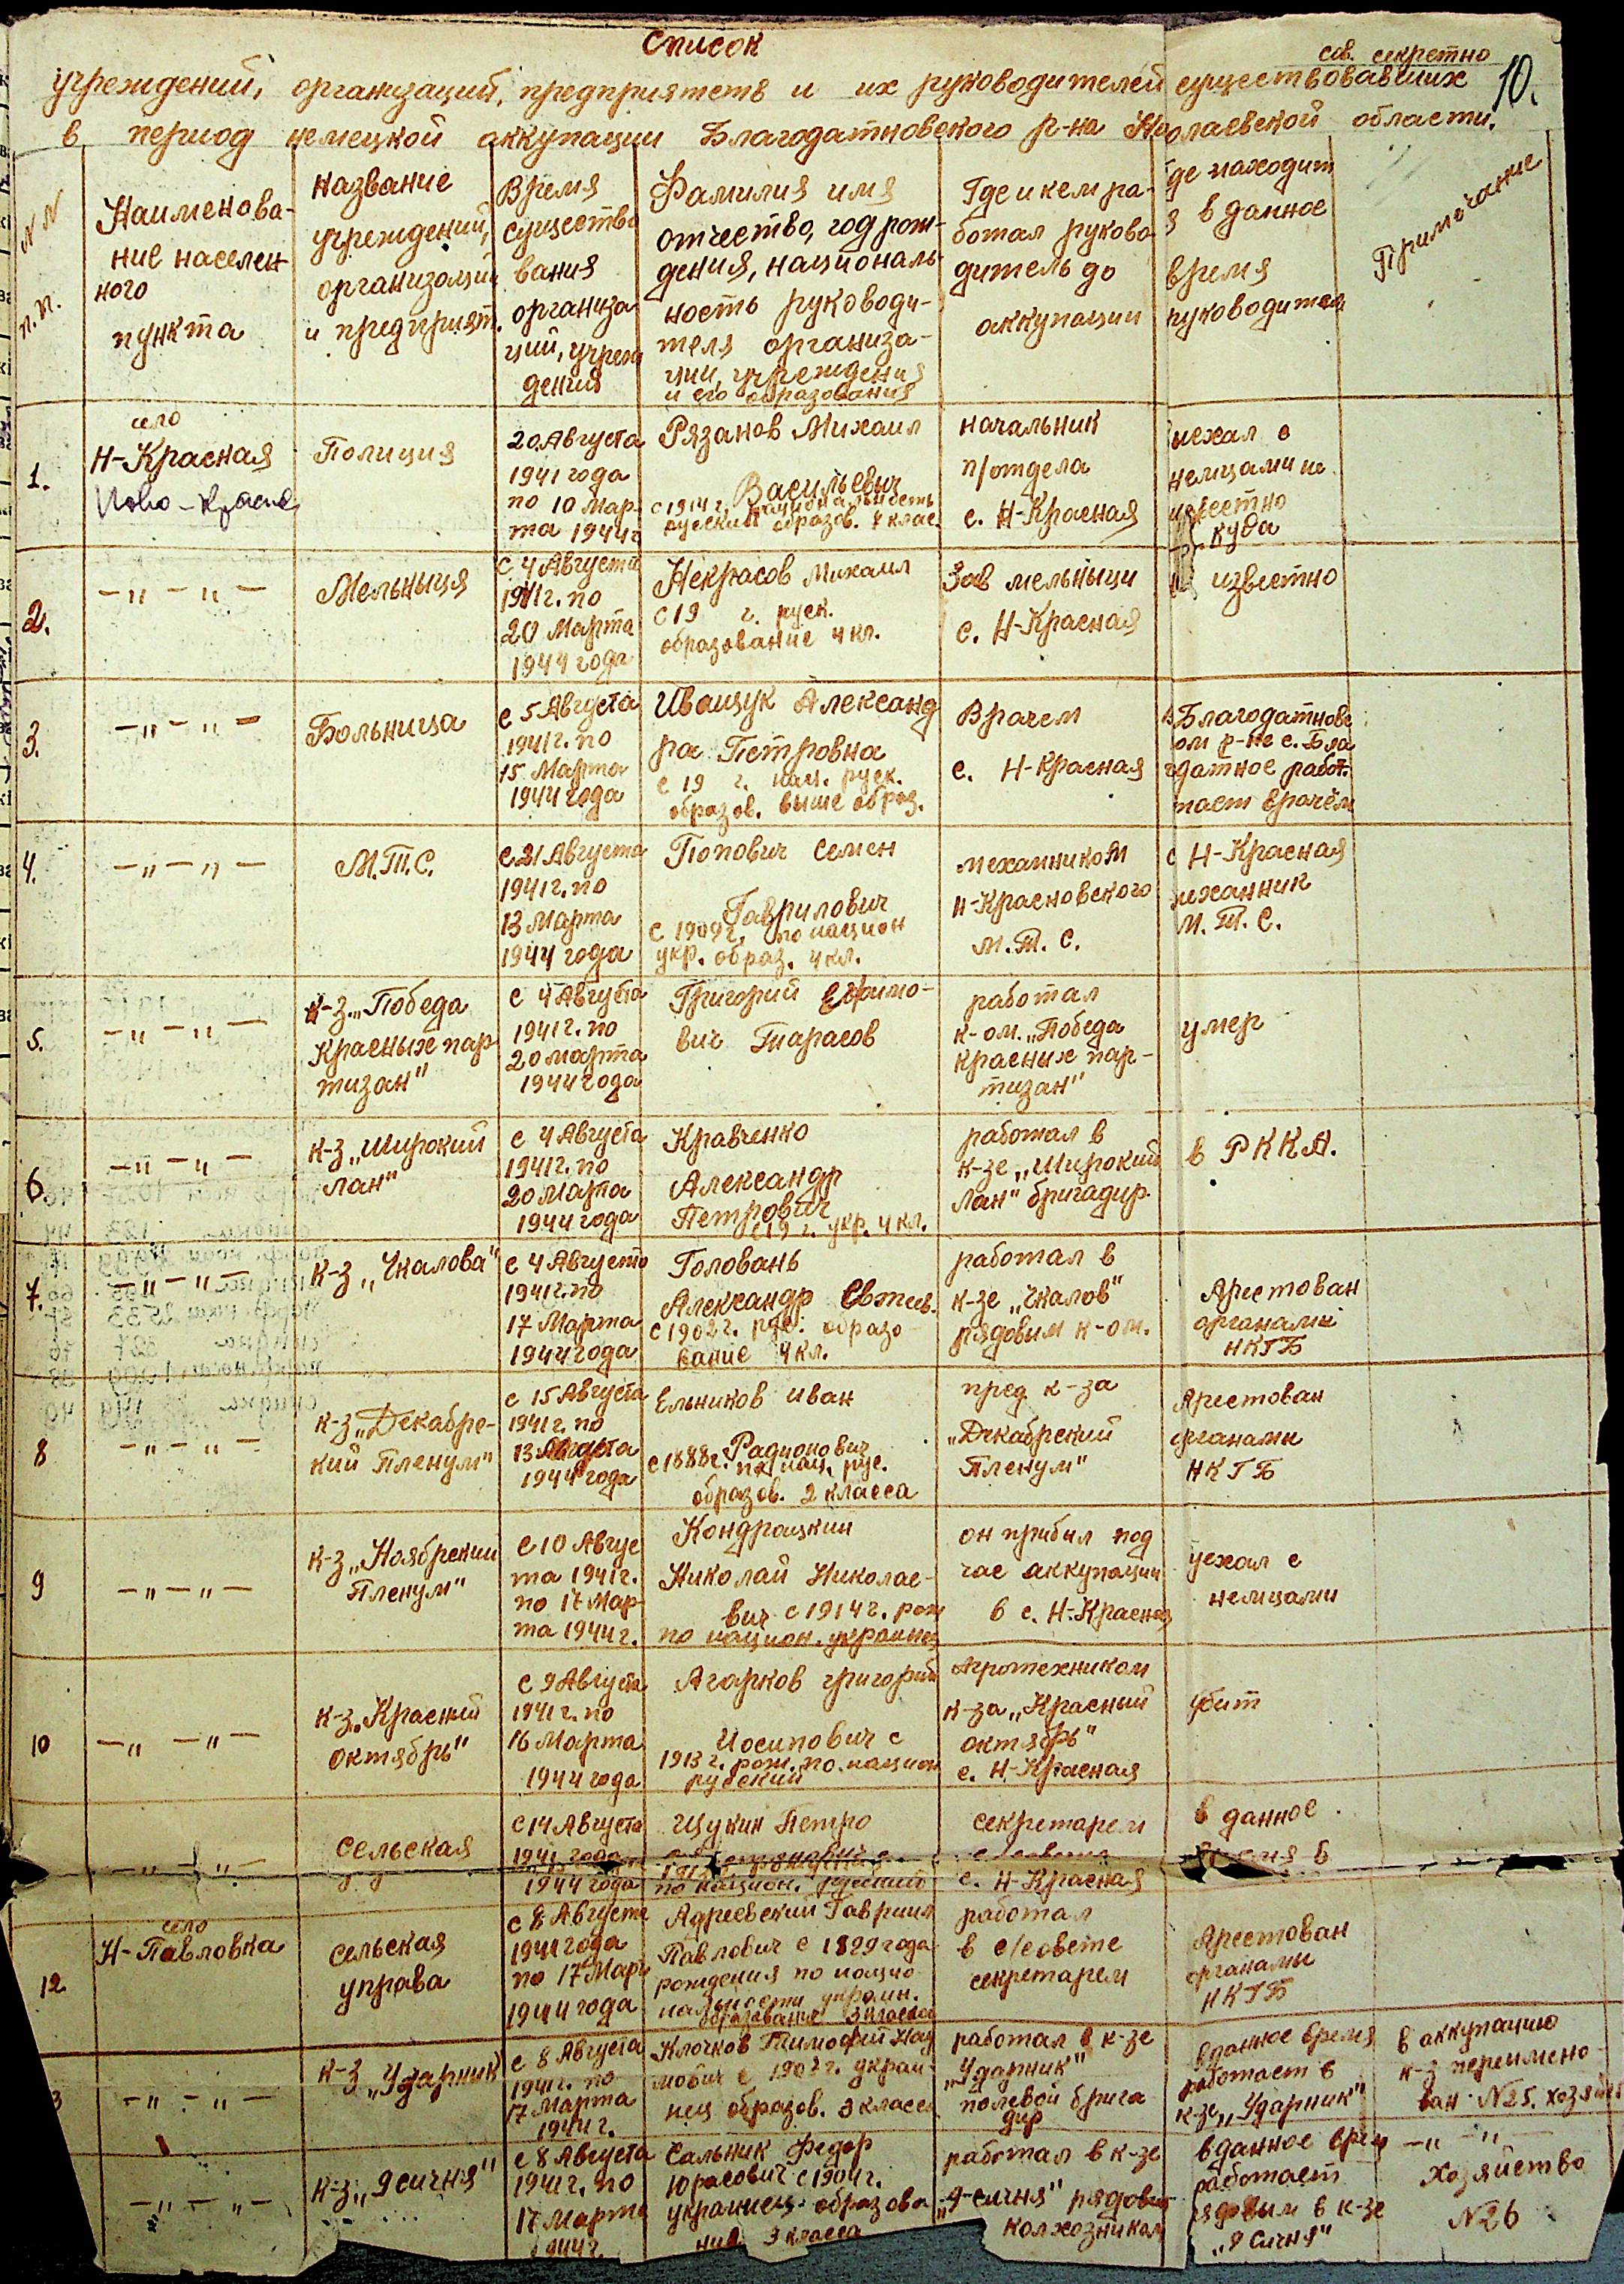 Список
сов. секретно
10.
учреждений, организаций, предприятств и их руководителей существовавших
в период немецкой аккупации Благодатновского р-на Николаевской области.
N N
п.п.
Наименова-
ние населен
ного
пункта
Название
учреждений,
организаций
и предприят.
Время
существо
вания
организа
ций, учреж
дения
Фамилия имя
отчество, год рож-
дения, националь-
ность руководи-
теля организа-
ции, учреждения
и его образования
Где и кем ра-
ботал руково-
дитель до
аккупации
где находит
я в данное
время
руководител
Примечание
1.
село
Н-Красная
Ново-Красн
Полиция
20 Августа
1941 года
по 10 Мар-
та 1944 г
Рязанов Михаил
Васильевич
с 1914 г. национальность
русский образов. 7 клас.
начальник
п/отдела
с. Н-Красная
уехал с
немцами не
известно
куда
2.
-"-"-
Мельныця
с 4 Августа
1941 г. по
20 Марта
1944 года
Некрасов Михаил
с 19 г. руск.
образование 4 кл.
Зав мельныци
с. Н-Красная
не известно
3.
-"-"-
Больница
с 5 Августа
1941 г. по
15 Марта
1944 года
Иващук Александ
ра Петровна
с 19 г. нац. руск.
образов. выше образ.
Врачем
с. Н-Красная
в Благодатновс
ом р-не с. Бла
годатное работ.
тает врачём
4.
-"-"-
М.Т.С.
с 21 Августа
1941 г. по
13 Марта
1944 года
Попович Семен
Гаврилович
с 1909 г. по национ
укр. образ. 4 кл.
механиком
Н-Красновского
М.Т.С.
с Н-Красная
механник
М.Т.С.
5.
-"-"-
к-з „Победа
Красных пар-
тизан"
с 4 Августа
1941 г. по
20 марта
1944 года
Григорий Ефимо-
вич Тарасов
работал
к-ом. „Победа
красных пар-
тизан"
умер
6.
-"-"-
к-з „Широкий
лан"
с 4 Августа
1941 г. по
20 Марта
1944 года
Кравченко
Александр
Петрович
с 19 г. укр. 4 кл.
работал в
к-зе „Широкий
Лан" бригадир.
в РККА.
7.
-"-"-
к-з „Чкалова"
с 4 Августа
1941 г. по
17 Марта
1944 года
Головань
Александр Евтеев.
с 1902 г. рус. образо-
вание 4 кл.
работал в
к-зе „Чкалов"
рядовим к-ом.
Арестован
органами
НКГБ
8
-"-"-
к-з „Декабрс-
кий Пленум"
с 15 Августа
1941 г. по
13 Августа
1944 года
Ельников Иван
Радионович
с 1888 г. по нац. рус.
образов. 2 класса
пред к-за
„Декабрский
Пленум"
Арестован
органами
НКГБ
9
-"-"-
к-з „Ноябрский
Пленум"
с 10 Авгус
та 1941 г.
по 17 Мар-
та 1944 г.
Кондрацкий
Николай Николае-
вич с 1914 г. рож
по национ. украинец
он прибыл под
час аккупации
в с. Н-Красная
уехал с
немцами
10
-"-"-
к-з „Красный
октябрь"
с 9 Августа
1941 г. по
16 Марта
1944 года
Агарков григорий
Иосипович с
1913 г. рож. по национ
руский
Агротехником
к-за „Красный
октябрь"
с. Н-Красная
убит
-"-"-
сельская
с 14 Августа
1941 года
1944 года
Щукин Петро
по национ. руский
секретарем
с. Н-Красная
в данное
12
село
Н-Павловка
сельская
управа
с 8 Августа
1941 года
по 17 Март
1944 года
Адреевский Гавриил
Павлович с 1829 года
рождения по нацио-
нальности украин.
образование 3 класса
работал
в с/совете
секретарем
Арестован
органами
НКГБ
3
-"-"-
к-з „Ударник"
с 8 Августа
1941 г. по
17 Марта
1944 г.
Клочков Тимофий Нау
мович с 1902 г. украи-
нец образов. 3 класса
работал в к-зе
„Ударник"
полевой брига
дир
в данное время
работает в
к-зе „Ударник"
в аккупацию
к-з переимено-
ван N 25. хозяйс
-"-"-
к-з „9 сичня"
с 8 Августа
1941 г. по
17 Марта
1944 г.
Сальник Федор
Юрасович с 1904 г.
украинец образова
ние 3 класса
работал в к-зе
„9-сичня" рядовим
колхозником
в данное врем
работает
рядовым в к-зе
„9 Сичня"
-"-"-
Хозяйство
N 26